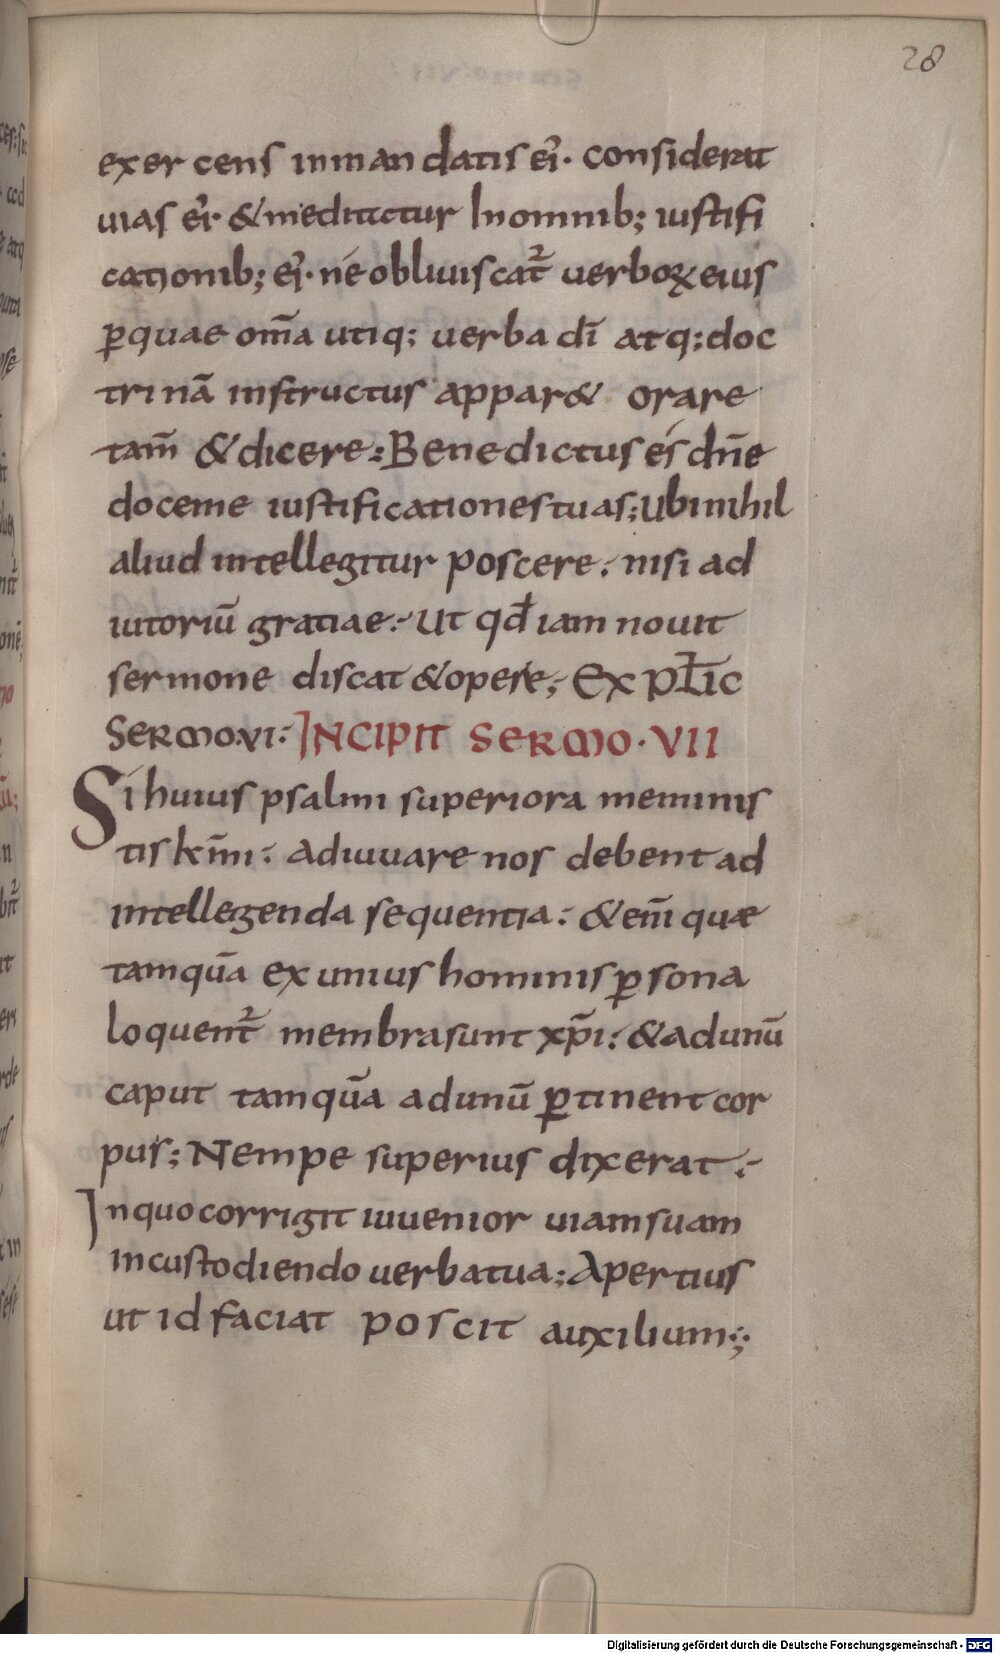 28
exercens in mandatis ei̅· considerat
uias ei̅· & meditetur In omnib; iustifi
cationib; ei̅· ne obliuiscat᷑ uerboꝝ eius
ꝑ quae om̅a utiq; uerba di̅ atq; doc
trinā instructus appar& orare
tam̅ & dicere: Benedictus es dn̅e
doce me iustificationes tuas; Ubi nihil
aliud intellegitur poscere: nisi ad
iutoriū gratiae:- Ut qd̅ iam nouit
sermone discat & opere; Expl̅ic
Sermo·vi:- INCIPIT SERMO·VII
Si huius psalmi superiora meminis
tis km̅i: adiuuare nos debent ad
intellegenda sequentia: & eni̅ quae
tamquā ex unius hominis ꝑsona
loquent᷑ membra sunt xp̅i: & ad unū
caput tamquā ad unū ꝑtinent cor
pus; Nempe superius dixerat:-
In quo corrigit iuuenior uiam suam
in custodiendo uerba tua; Apertius
ut id faciat poscit auxilium;
Digitalisierung gefördert durch die Deutsche Forschungsgemeinschaft - DFG